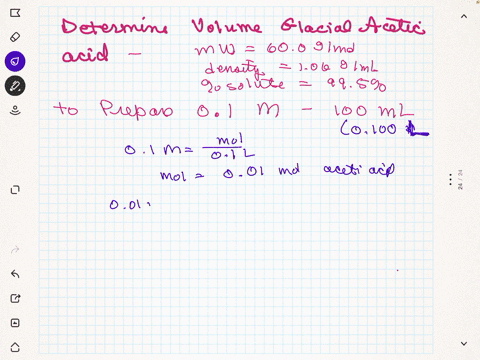 Determine Volume Glacial Acetic
acid – MW = 60.0 g/mol
density = 1.06 g/mL
% solute = 99.5%
to Prepare 0.1 M – 100 mL
(0.100 L
0.1 M = mol / 0.1 L
mol = 0.01 mol acetic acid
0.01
24 / 24